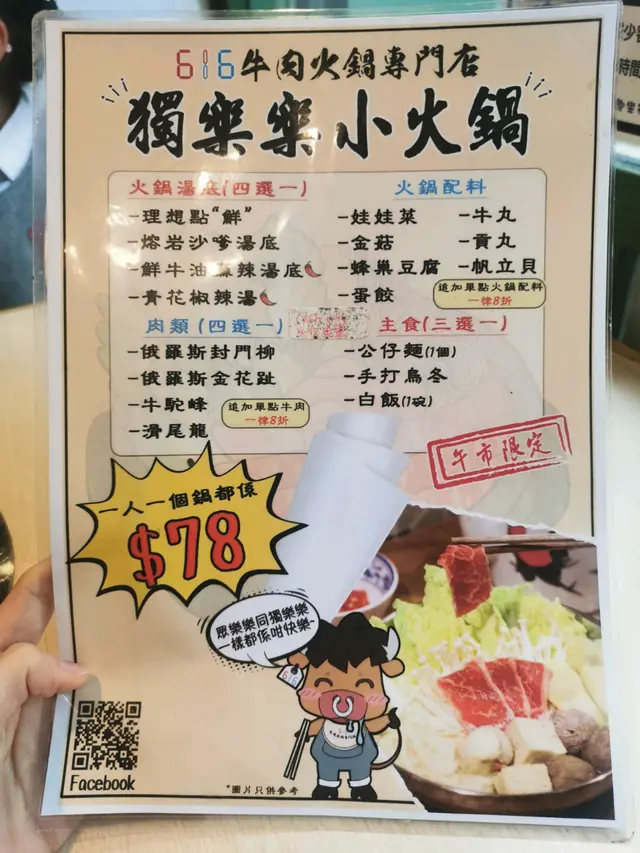 616牛肉火鍋專門店
獨樂樂小火鍋
火鍋湯底(四選一)
-理想點“鮮”
-熔岩沙爹湯底
-鮮牛油麻辣湯底
-青花椒辣湯
火鍋配料
-娃娃菜 -牛丸
-金菇 -貢丸
-蜂巢豆腐 -帆立貝
-蛋餃
追加單點火鍋配料
一律8折
肉類(四選一)
-俄羅斯封門柳
-俄羅斯金花趾
-牛駝峰
-滑尾龍
追加單點牛肉
一律8折
主食(三選一)
-公仔麵(1個)
-手打烏冬
-白飯(1碗)
午市限定
一人一個鍋都係
$78
眾樂樂同獨樂樂
一樣都係咁快樂~
616
Facebook
*圖片只供參考
時間